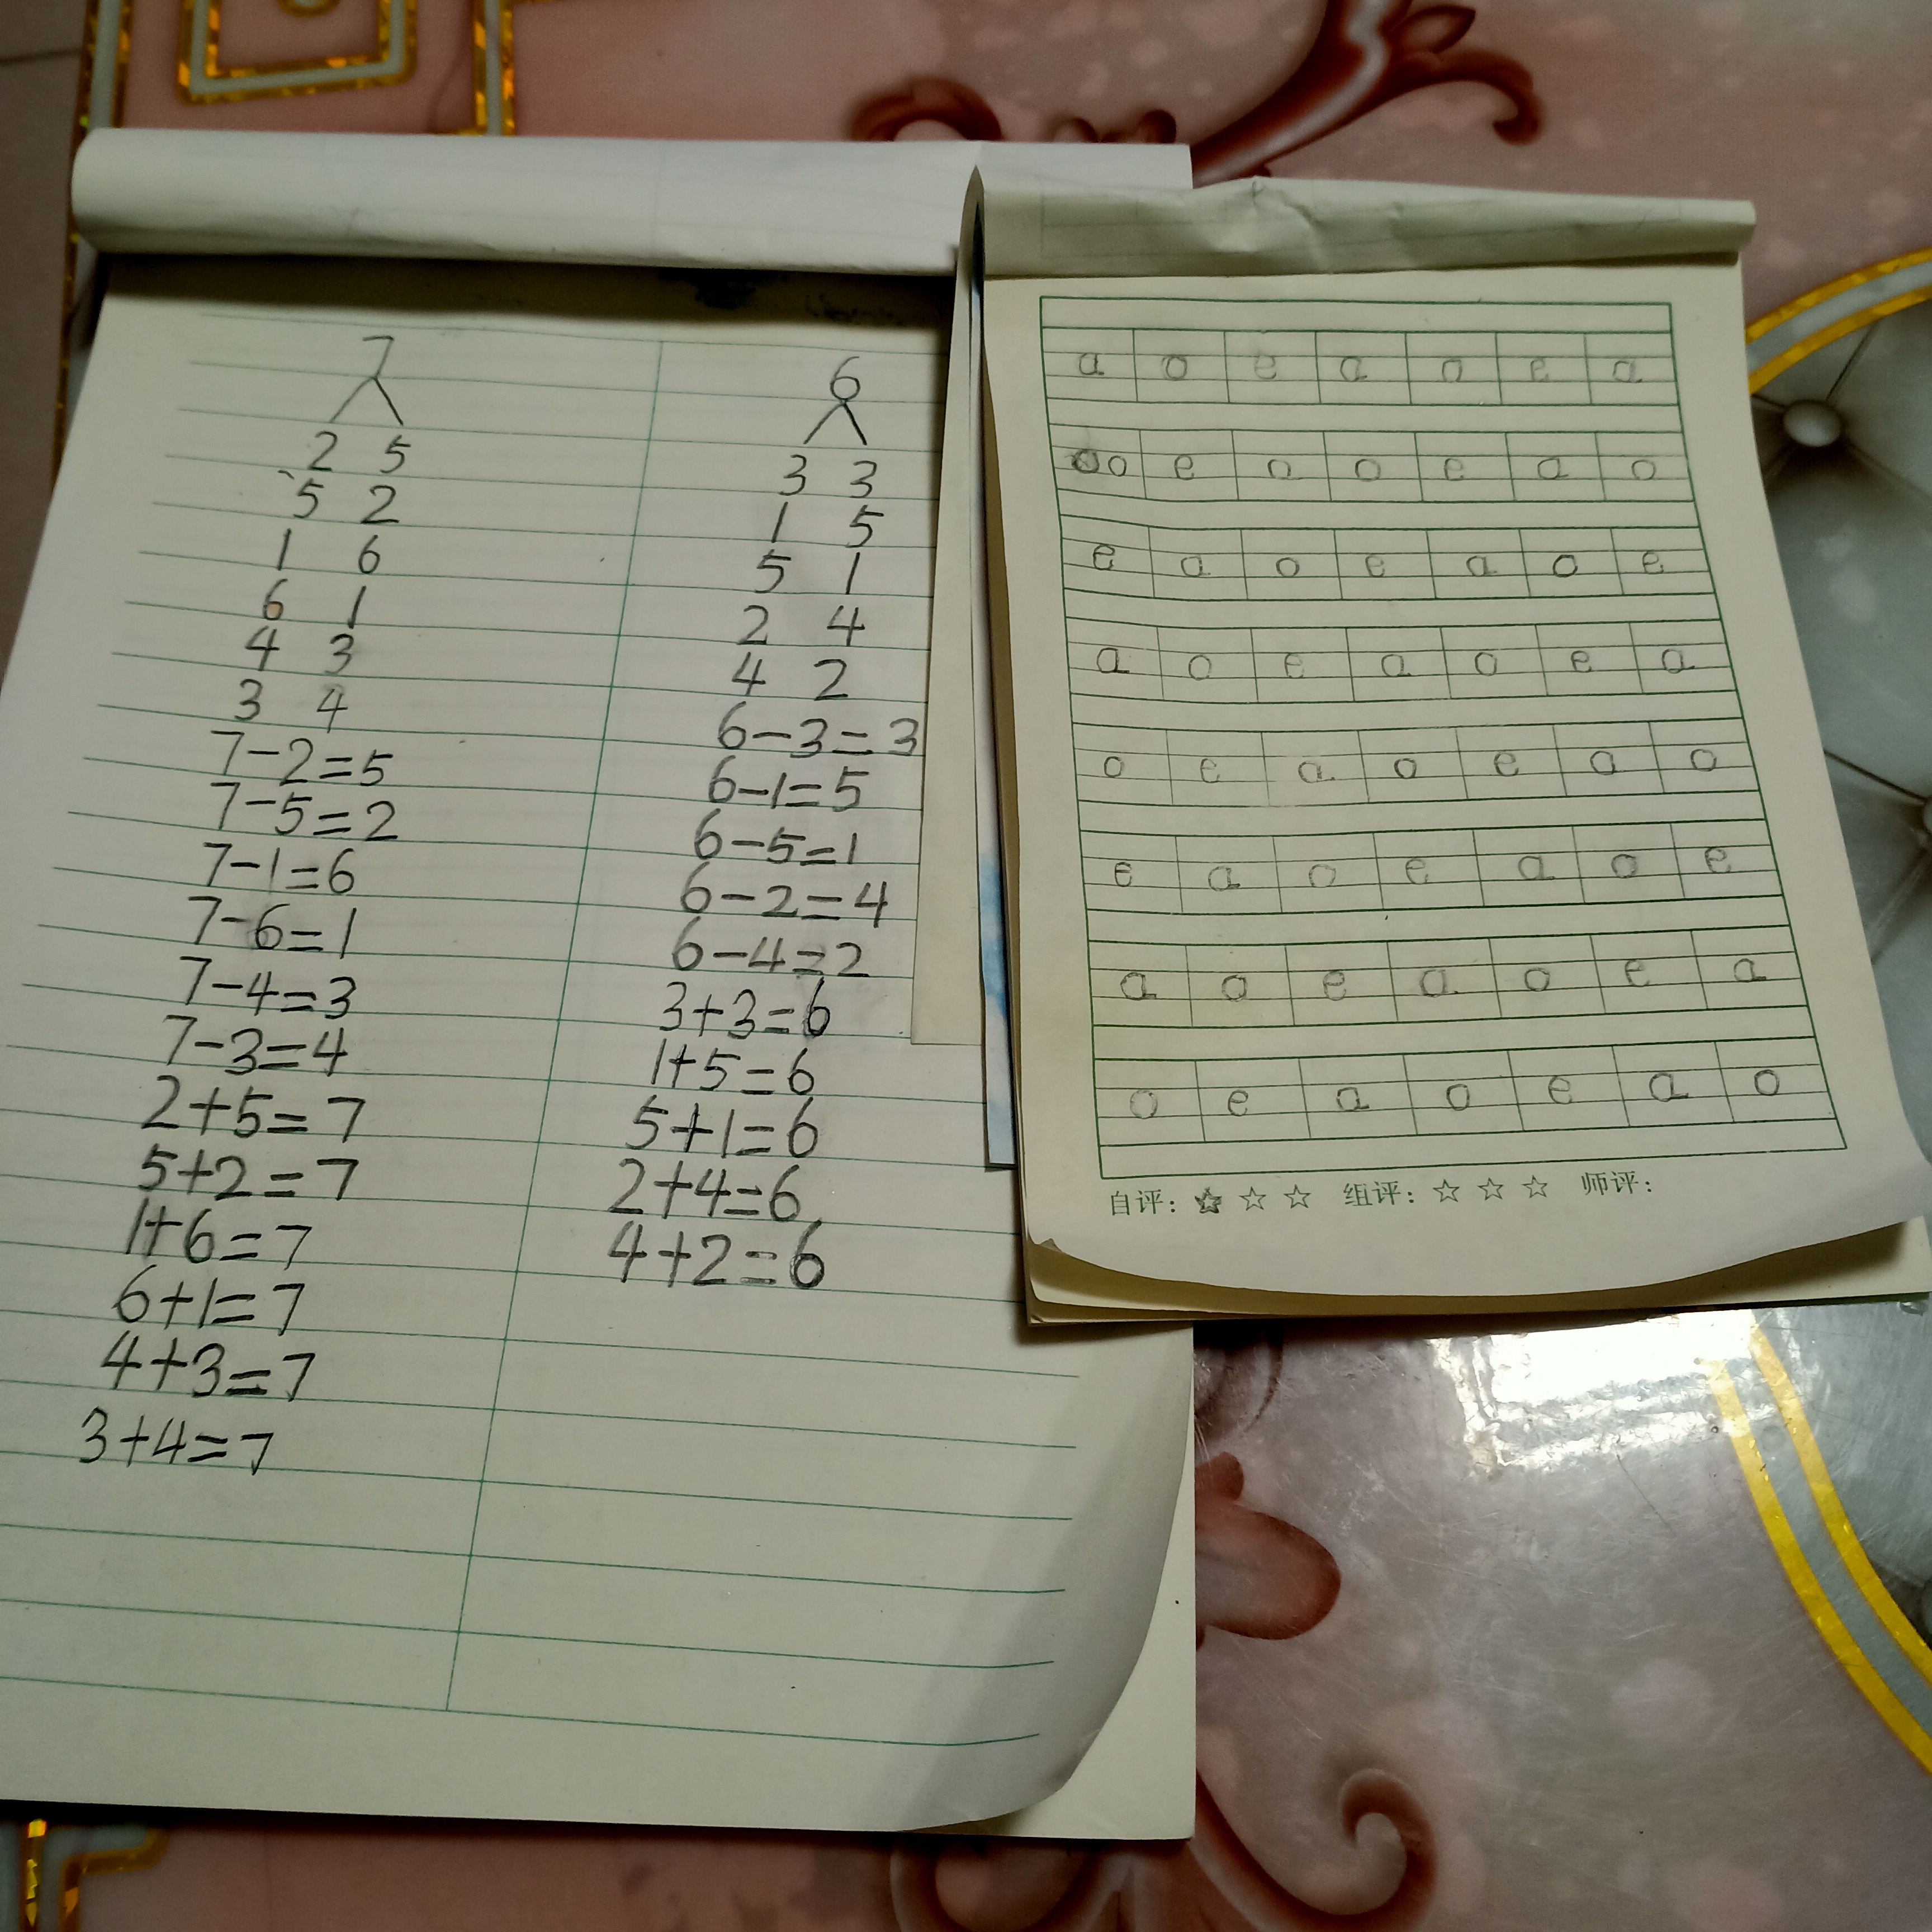 7
2 5
5 2
1 6
6 1
4 3
3 4
7-2=5
7-5=2
7-1=6
7-6=1
7-4=3
7-3=4
2+5=7
5+2=7
1+6=7
6+1=7
4+3=7
3+4=7
6
3 3
1 5
5 1
2 4
4 2
6-3=3
6-1=5
6-5=1
6-2=4
6-4=2
3+3=6
1+5=6
5+1=6
2+4=6
4+2=6
a o e a o e a
o e o o e a o
e a o e a o e
a o e a o e a
o e a o e a o
e a o e a o e
a o e a o e a
o e a o e a o
自评：☆ ☆ ☆ 组评：☆ ☆ ☆ 师评：